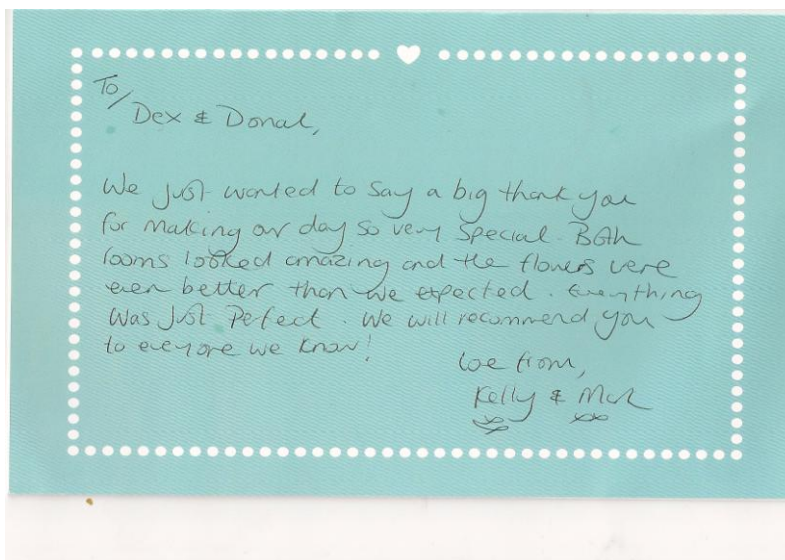 To/
Dex & Donal,
We just wanted to say a big thank you
for making our day so very special. Both
rooms looked amazing and the flowers were
even better than we expected. Everything
was just perfect. We will recommend you
to everyone we know!
love from,
Kelly & Mark
xx xx